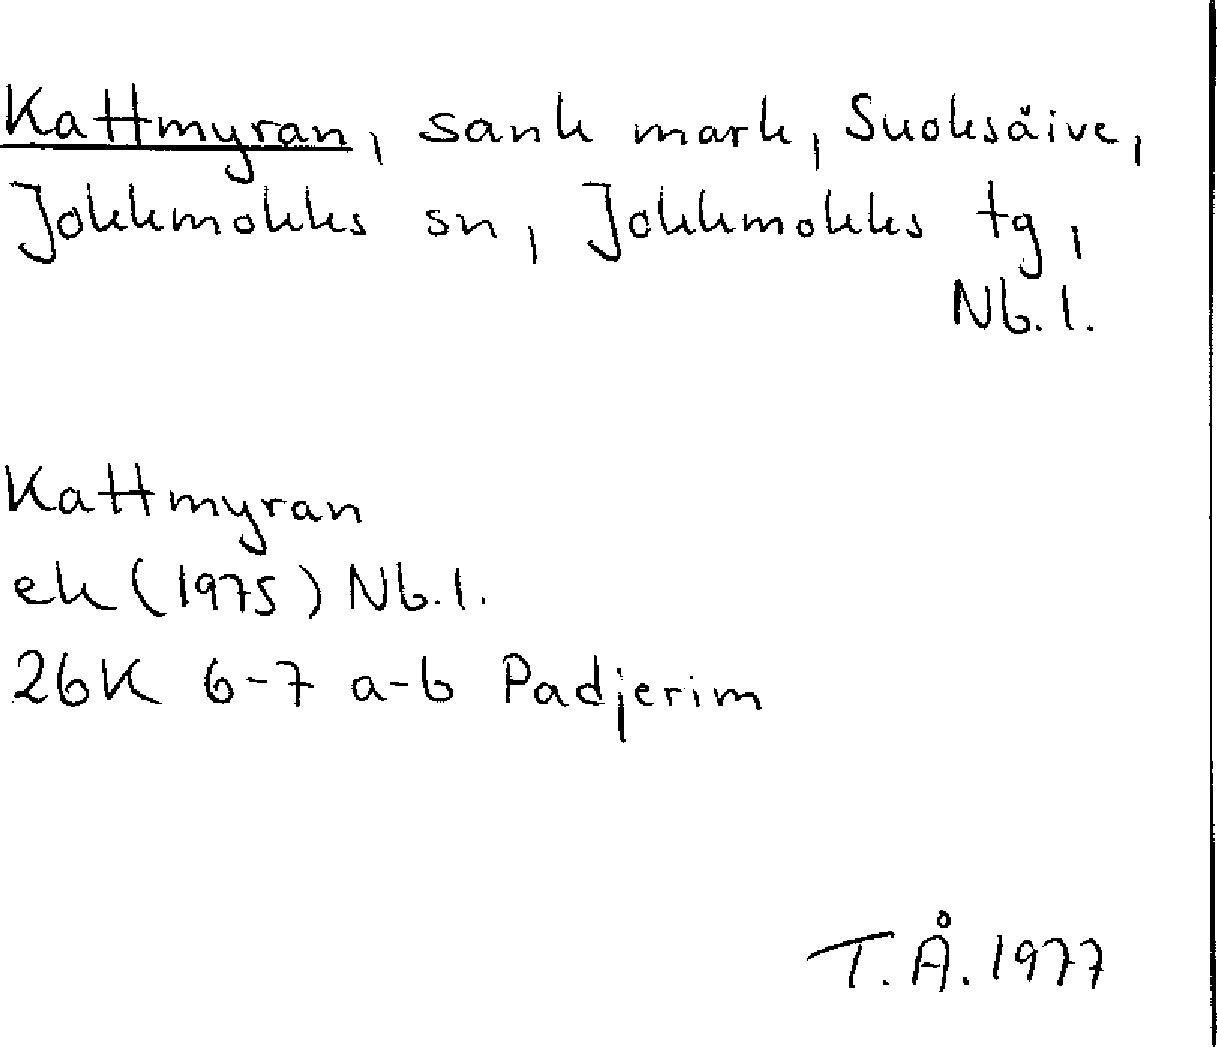 Kattmyran, sank mark, Suoksåive,
Jokkmokks sn, Jokkmokks tg,
Nb. l.
Kattmyran
ek (1975) Nb. l.
26K 6-7 a-b Padjerim
T. Å. 1977